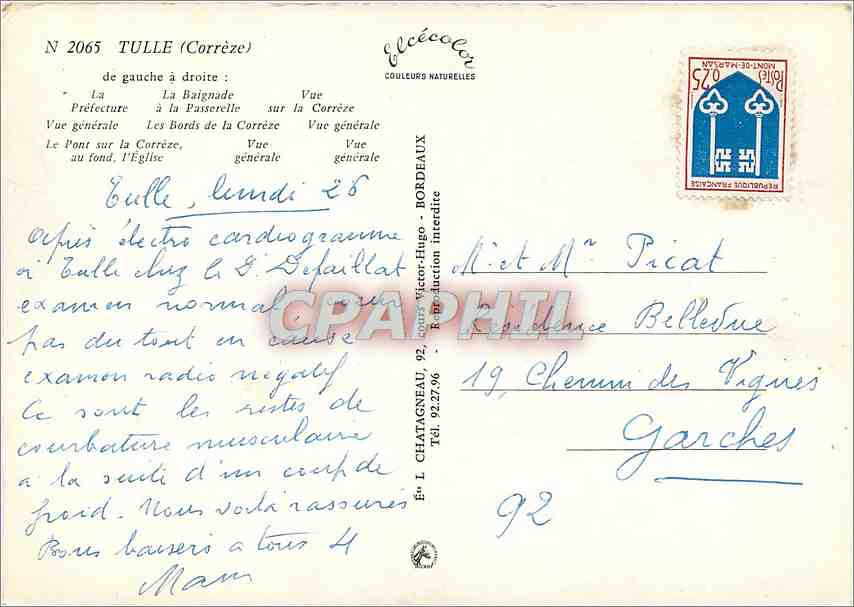 N 2065 TULLE (Corrèze)
de gauche à droite :
La La Baignade Vue
Préfecture à la Passerelle sur la Corrèze
Vue générale Les Bords de la Corrèze Vue générale
Le Pont sur la Corrèze, Vue Vue
au fond, l'Église générale générale
Elcécolor
COULEURS NATURELLES
Tulle, lundi 26
Après électro cardiogramme
à Tulle chez le Dr Defaillat
examen normal cœur
pas du tout en cause
examen radio négatif
Ce sont les restes de
courbature musculaire
a la suite d'un coup de
froid. Nous voilà rassurés
Bons baisers a tous 4
Mam
Éon L CHATAGNEAU, 92, cours Victor-Hugo - BORDEAUX
Tél. 92.27.96 - Reproduction interdite
REPUBLIQUE FRANÇAISE
MONT-DE-MARSAN
POSTES
0,25
CPAPHIL
Me et Mr Picat
Residence Bellevue
19, Chemin des Vignes
Garches
92